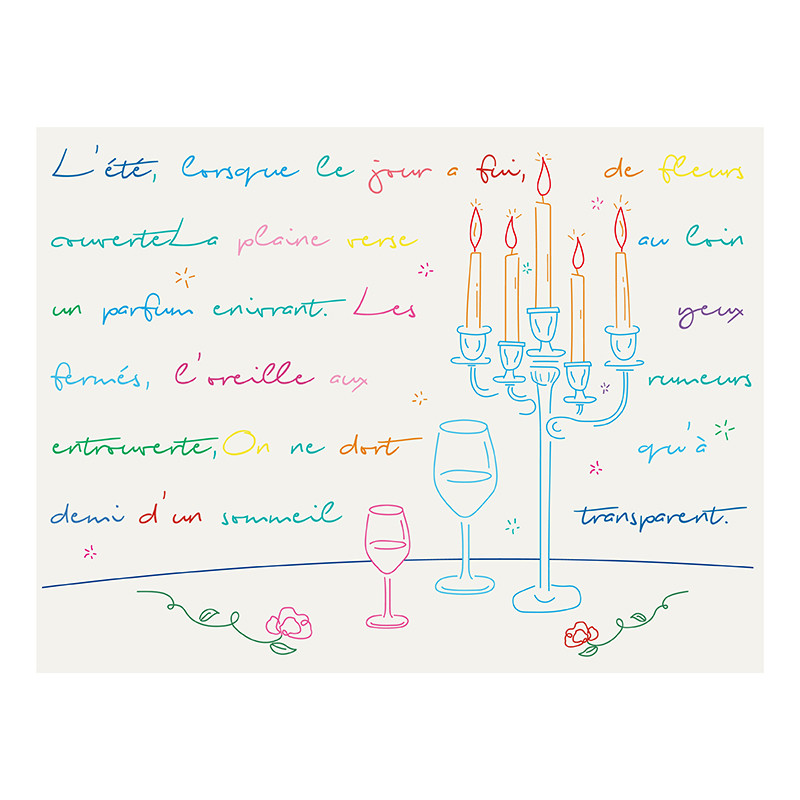 L'été, lorsque le jour a fui, de fleurs
couverteLa plaine verse au loin
un parfum enivrant. Les yeux
fermés, l'oreille aux rumeurs
entrouverte,On ne dort qu'à
demi d'un sommeil transparent.